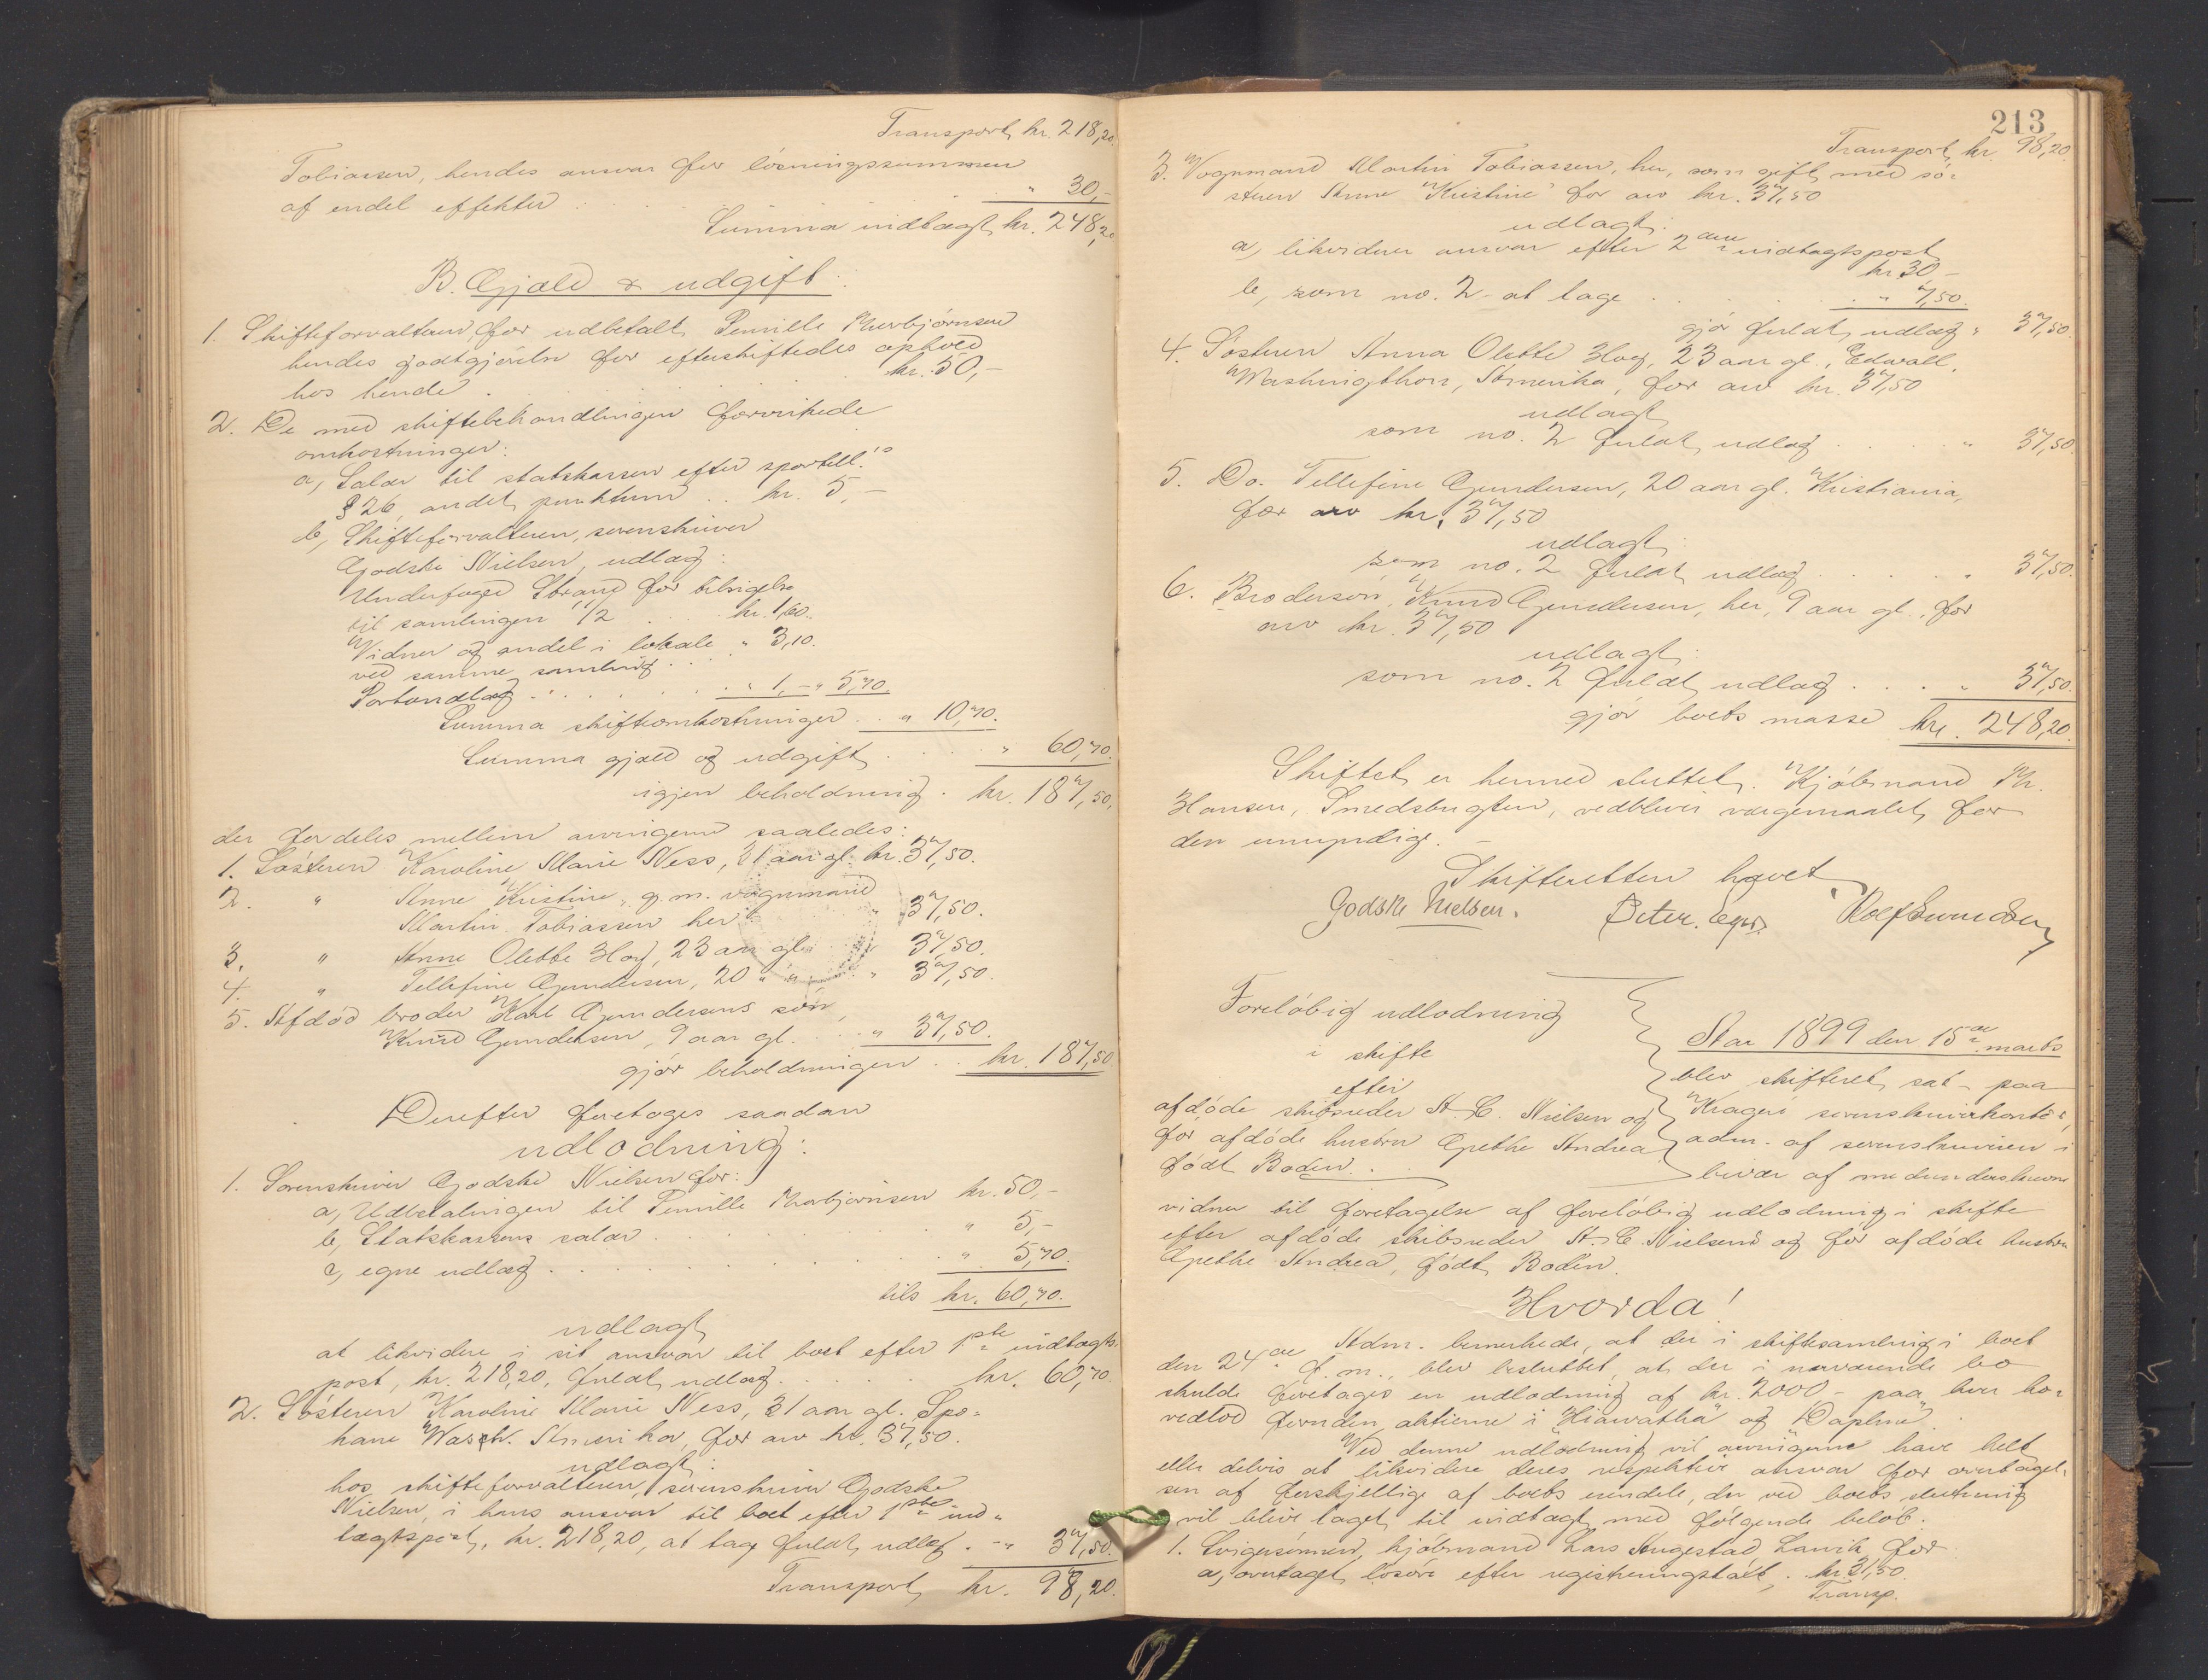 Transport kr. 218,20.
Tobiassen, hendes ansvar for løsningssummen
af endel effekter . . . . " 30,-
Summa indtægt kr. 248,20
B. Gjæld & udgift:
1. Skifteforvalteren for udbetalt Pernille Thorbjørnsen
hendes godtgjørelse for efterskiftedes ophold
hos hende . . . kr. 50,-
2. De med skiftebehandlingen forvirkede
omkostninger:
a, Salær til statskassen efter sportell.
§ 26, andet punktum . . kr. 5,-
b, Skifteforvalteren, sorenskriver
Godske Nielsen, udlæg:
Underfoged Strand for tilsigelse
til samlingen 1/2 . . . kr. 1,60.
Vidner og andel i lokale " 3,10.
ved samme samling . . .
Portoudlæg . . . . . . " 1,- " 5,70.
Summa skifteomkostninger . . " 10,70.
Summa gjæld og udgift . . . . " 60,70.
igjen beholdning . kr. 187,50,
der fordeles mellem arvingerne saaledes:
1. Søsteren Karoline Marie Ness, 31 aar gl. kr. 37,50.
2. " Anne Kristine, g. m. vognmand
Martin Tobiassen her " 37,50.
3. " Anne Olette Hoy, 23 aar gl. " 37,50.
4. " Tellefine Gundersen, 20 " " " 37,50.
5. Afdød broder Karl Gundersens søn,
Knud Gundersen, 9 aar gl. . . " 37,50.
gjør beholdningen . . kr. 187,50
Derefter foretoges saadan
udlodning:
1. Sorenskriver Godske Nielsen for:
a, Udbetalingen til Pernille Thorbjørnsen kr. 50,-
b, Statskassens salær . . . . . " 5,-
c, egne udlæg . . . . . . . " 5,70.
tils kr. 60,70.
udlagt
at likvidere i sit ansvar til boet efter 1ste indtægts
post, kr. 218,20, fuldt udlæg . . . . . kr. 60,70.
2. Søsteren Karoline Marie Ness, 31 aar gl. Spo=
kane Wasch. Amerika, for arv kr. 37,50.
udlagt:
hos skifteforvalteren, sorenskriver Godske
Nielsen, i hans ansvar til boet efter 1ste ind=
tægtspost, kr. 218,20, at tage fuldt udlæg . . " 37,50.
Transport kr. 98,20.
213
Transport kr. 98,20.
3. Vognmand Martin Tobiassen, her, som gift med sø=
steren Anne Kristine for arv kr. 37,50
udlagt:
a, likviderer ansvar efter 2den indtægtspost
kr 30 -
b, som no. 2 at tage . . . . . . " 7,50.
gjør fuldt udlæg " 37,50.
4. Søsteren Anna Olette Hoy, 23 aar gl., Edwall,
Washingthon, Amerika, for arv kr. 37,50
udlagt
som no. 2 fuldt udlæg . . . . " 37,50.
5. Do. Tellefine Gundersen, 20 aar gl. Kristiania,
for arv kr. 37,50
udlagt:
som no. 2 fuldt udlæg . . . . . " 37,50.
6. Brodersøn, Knud Gundersen, her, 9 aar gl., for
arv kr. 37,50
udlagt:
som no. 2 fuldt udlæg . . . . " 37,50.
gjør boets masse kr. 248,20.
Skiftet er hermed sluttet. Kjøbmand Th.
Hansen, Smedsbugten, vedbliver værgemaalet for
den umyndige. -
Skifteretten hævet
Godske Nielsen. Peter.
Foreløbig udlodning
i skifte
efter
afdøde skibsreder A. C. Nielsen og
før afdøde hustru Grethe Andrea
født Bodin.
Aar 1899 den 15de marts
blev skifteret sat paa
Kragerø sorenskriverkontor,
adm. af sorenskriveren i
bivær af medunderskrevne
vidner til foretagelse af foreløbig udlodning i skifte
efter afdøde skibsreder A. C. Nielsens og før afdøde hustru
Grethe Andrea, født Bodin.
Hvorda!
Adm. bemerkede, at der i skiftesamling i boet
den 24de f. m., blev besluttet, at der i nærværende bo
skulde foretages en udlodning af kr. 2000,- paa hver ho=
vedlod foruden aktierne i "Hiawatha" og "Daphne".
Ved denne udlodning vil arvingerne have helt
eller delvis at likvidere deres respektive ansvar for overtagel=
sen af forskjellige af boets eiendele, der ved boets slutning
vil blive taget til indtægt med følgende beløb:
1. Svigersønnen, kjøbmand Lars Augestad Larvik for
a, overtaget løsøre efter registreringstaxt, . kr. 31,50.
Transp.